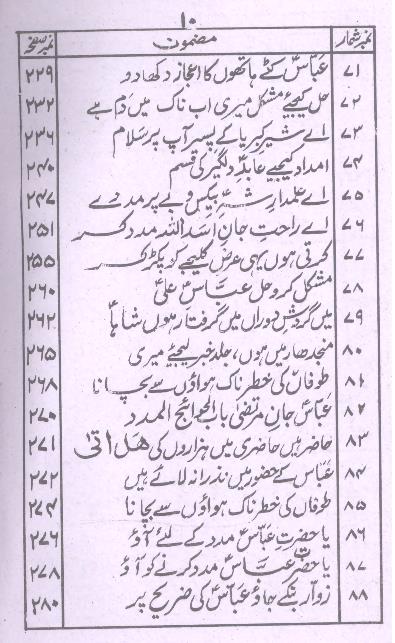 ۱۰
نمبر شمار مضمون نمبر صفحہ
۷۱ عباسؑ کٹے ہاتھوں کا اعجاز دکھا دو ۲۲۹
۷۲ حل کیجیے مشکل میری اب ناک میں دم ہے ۲۳۲
۷۳ اے شیرِ کبریا کے پسر آپ پر سلام ۲۳۶
۷۴ امداد کیجیے عابدِ دلگیر کی قسم ۲۴۰
۷۵ اے علمدارِ شہِ بیکس و بے پر مددے ۲۴۷
۷۶ اے راحتِ جانِ اسد اللہ مدد کر ۲۵۱
۷۷ کرتی ہوں یہی عرض کلیجے کو پکڑ کر ۲۵۵
۷۸ مشکل کرو حل عباسؑ علیؑ ۲۶۰
۷۹ میں گردشِ دوراں میں گرفتار ہوں شاہا ۲۶۲
۸۰ منجدھار میں ہوں، جلد خبر لیجئے میری ۲۶۵
۸۱ طوفاں کی خطرناک ہواؤں سے بچانا ۲۶۸
۸۲ عباسؑ جانِ مرتضیٰ باب الحوائج المدد ۲۷۰
۸۳ حاضر ہیں حاضری میں ہزاروں کی ھل اتیٰ ۲۷۱
۸۴ عباسؑ کے حضور میں نذرانہ لائے ہیں ۲۷۲
۸۵ طوفاں کی خطرناک ہواؤں سے بچانا ۲۷۴
۸۶ یا حضرتِ عباسؑ مدد کے لئے آؤ ۲۷۶
۸۷ یا حضرت عباسؑ مدد کرنے کو آؤ ۲۷۸
۸۸ زوار بنکے جاؤ عباسؑ کی ضریح پر ۲۸۰